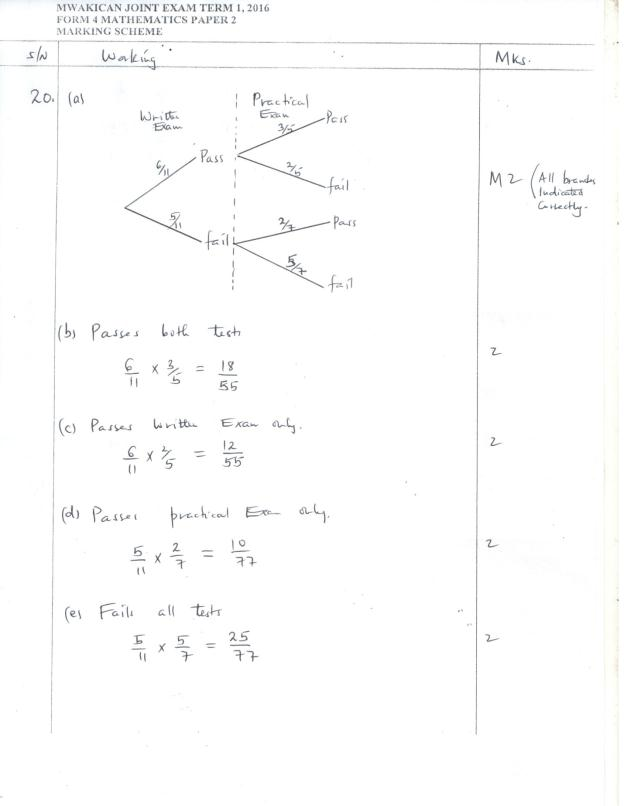 MWAKICAN JOINT EXAM TERM 1, 2016
FORM 4 MATHEMATICS PAPER 2
MARKING SCHEME
S/N Working Mks.
20. (a)
Written Exam
Practical Exam
6/11 Pass
3/5 Pass
2/5 fail
5/11 fail
2/7 Pass
5/7 fail
M2 (All branches
Indicated
Correctly.
(b) Passes both tests 2
6/11 × 3/5 = 18/55
(c) Passes written Exam only. 2
6/11 × 2/5 = 12/55
(d) Passes practical Exam only. 2
5/11 × 2/7 = 10/77
(e) Fails all tests 2
5/11 × 5/7 = 25/77